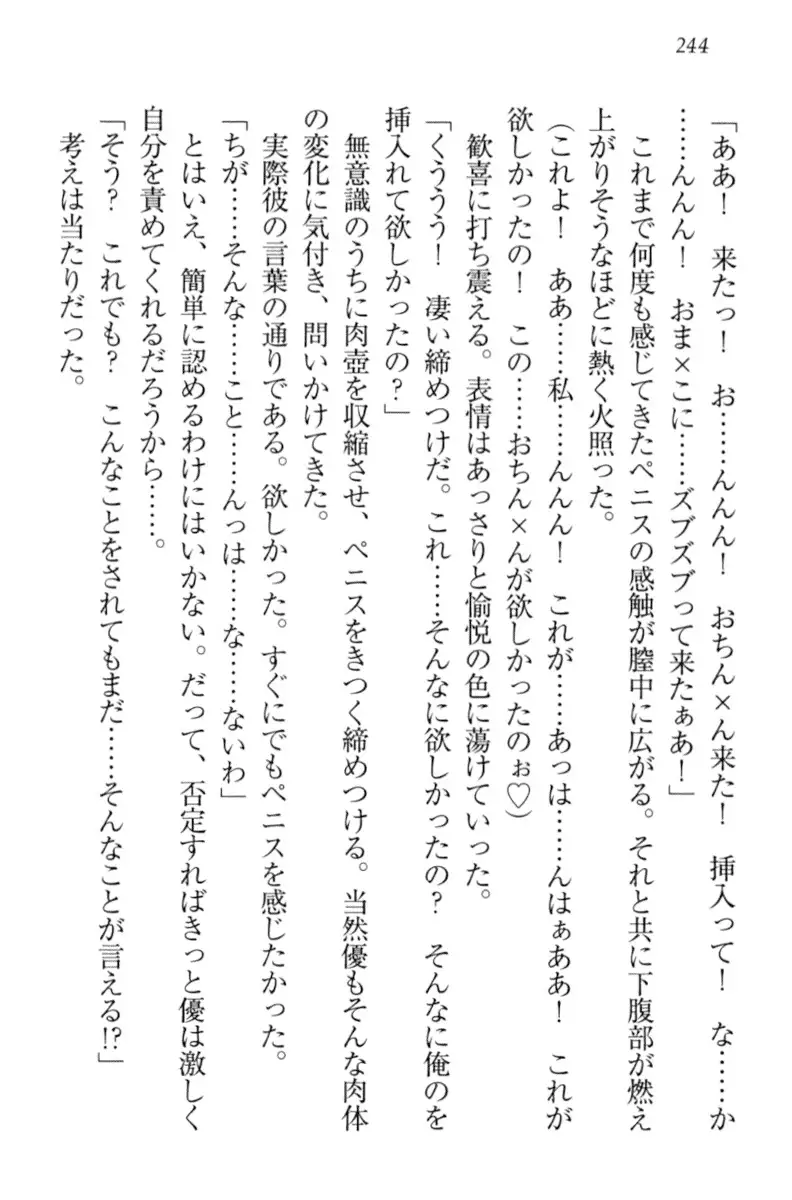 244
「ああ！　来たっ！　お……んんん！　おちん×ん来た！　挿入って！　な……か
……んんん！　おま×こに……ズブズブって来たぁあ！」
　これまで何度も感じてきたペニスの感触が膣中に広がる。それと共に下腹部が燃え
上がりそうなほどに熱く火照った。
（これよ！　ああ……私……んんん！　これが……あっは……んはぁああ！　これが
欲しかったの！　この……おちん×んが欲しかったのぉ♡）
　歓喜に打ち震える。表情はあっさりと愉悦の色に蕩けていった。
「くううう！　凄い締めつけだ。これ……そんなに欲しかったの？　そんなに俺のを
挿入れて欲しかったの？」
　無意識のうちに肉壺を収縮させ、ペニスをきつく締めつける。当然優もそんな肉体
の変化に気付き、問いかけてきた。
　実際彼の言葉の通りである。欲しかった。すぐにでもペニスを感じたかった。
「ちが……そんな……こと……んっは……な……ないわ」
　とはいえ、簡単に認めるわけにはいかない。だって、否定すればきっと優は激しく
自分を責めてくれるだろうから……。
「そう？　これでも？　こんなことをされてもまだ……そんなことが言える!?」
　考えは当たりだった。